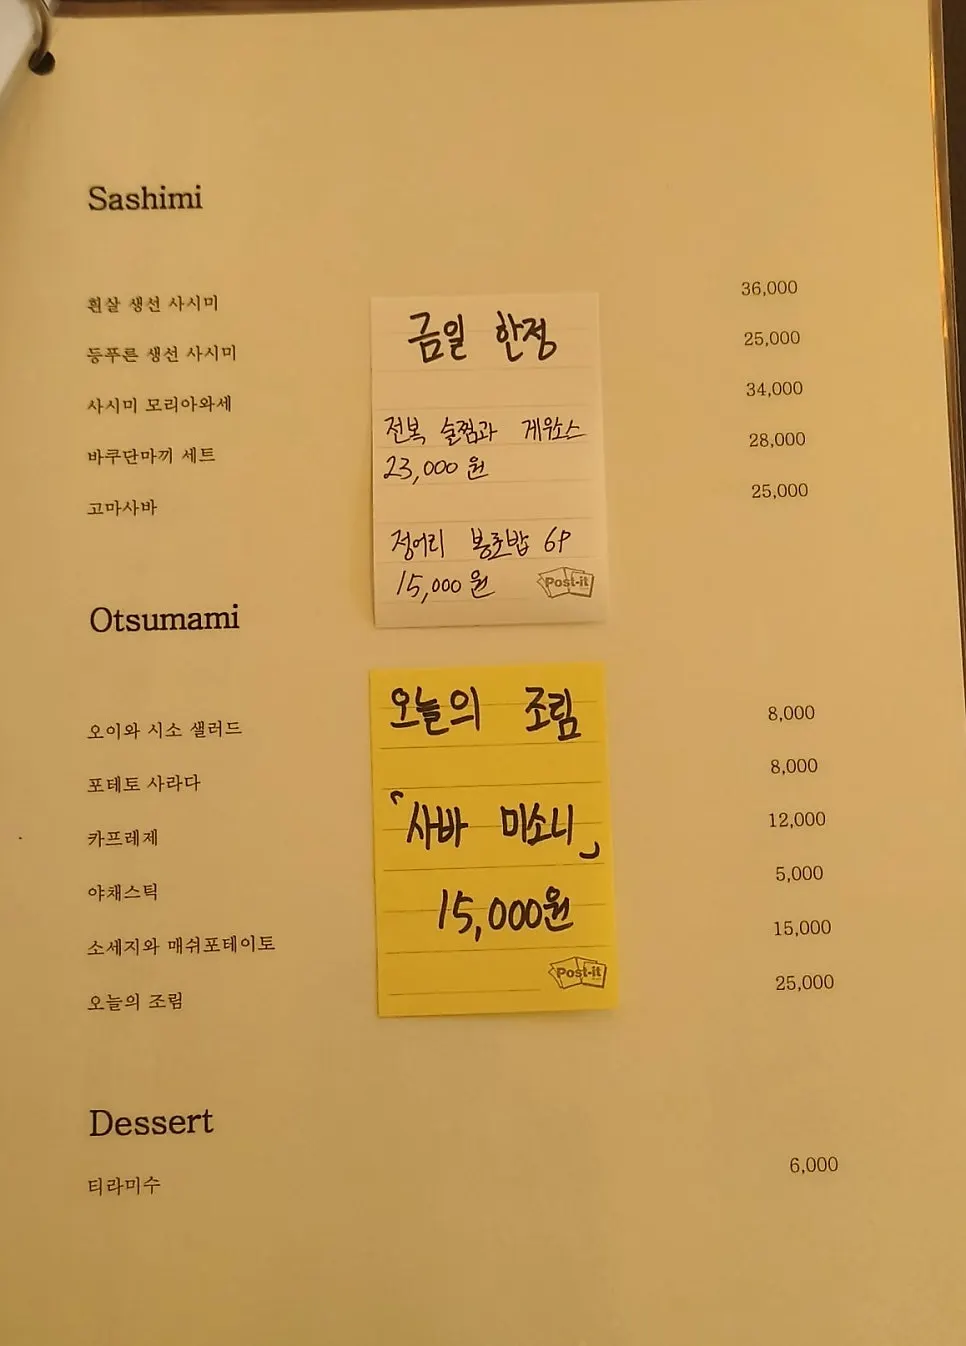 Sashimi
흰살 생선 사시미 36,000
등푸른 생선 사시미 25,000
사시미 모리아와세 34,000
바쿠단마끼 세트 28,000
고마사바 25,000
금일 한정
전복 술찜과 게우소스
23,000원
정어리 봉초밥 6P
15,000원
Post-it
Otsumami
오이와 시소 샐러드 8,000
포테토 사라다 8,000
카프레제 12,000
야채스틱 5,000
소세지와 매쉬포테이토 15,000
오늘의 조림 25,000
오늘의 조림
「사바 미소니」
15,000원
Post-it
Dessert
티라미수 6,000